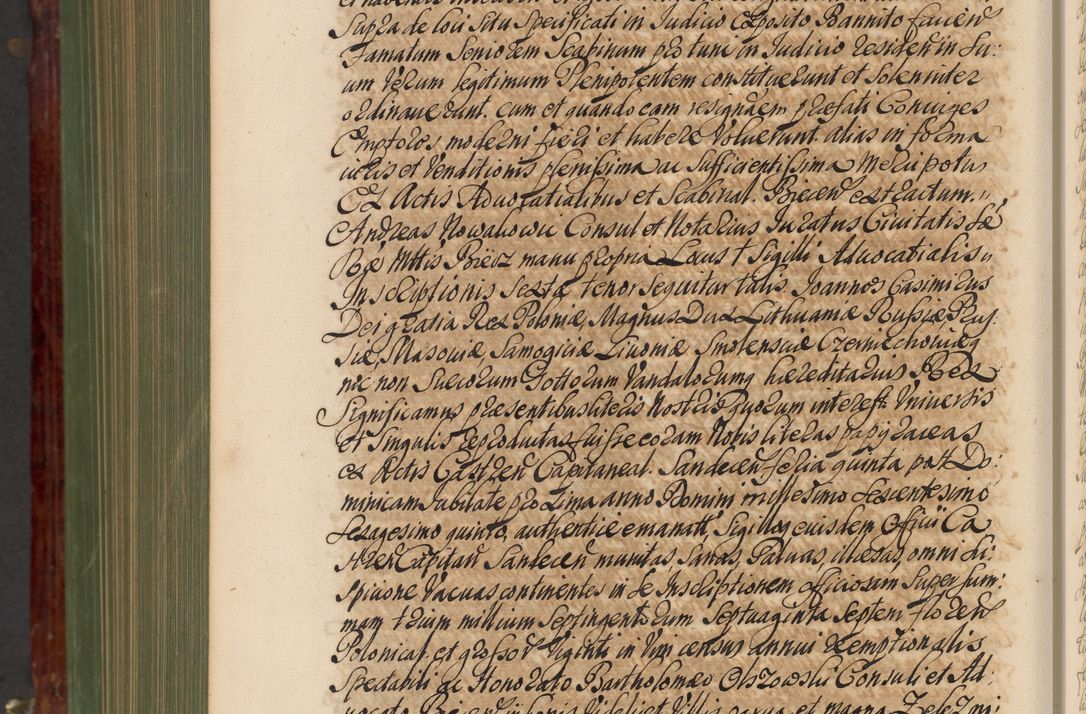 Supra de loci situ Specificati in Judicio Exposito Bannito faciend
Famatum Seniorem Scabinum pro tunc in Judicio residen̄ in Su:
um verum legitimum Plenipotentem constituerunt et Solenniter
ordinaverunt. cum et quando eam resignaem praefati Coniuges
Emptores moderni fieri et habere voluerunt. alias in forma
iuris et Venditionis plenissima ac sufficientissima Meru potus
Ex Actis Advocatialibus et Scabinal. Biecen̄ extractum.
Andreas Nowakowic Consul et Notarius Juratus Civitatis Sæ
Ræ Mttis Biecz manu propria Locus † Sigilli Advocatialis
Inscriptionis Sextæ tenor sequitur talis Joannes Casimirus
Dei gratia Rex Poloniæ, Magnus Dux Lithuaniæ Russiæ Prus
siæ, Masoviæ, Samogitiæ Livoniæ Smolensciæ Czerniechoviæq
nec non Suecorum Gottorum Vandalorumq hæreditarius Rex
Significamus præsentibus literis Nostris quorum interest Universis
et Singulis reproductas fuisse coram Nobis literas papiraceas
ex Actis Castren̄ Capitaneal. Sandecen̄ feria quinta post Do:
minicam Jubilate proxima anno Domini millesimo Sexcentesimo
Sexagesimo quinto, authentice emanatt, Sigilloq eiusdem Officii Ca
stren̄ Capitan̄ Sandecen̄ munitas Sanas, Salvas, illæsas, omni di:
spicione Vacuas continentes in se Inscriptionem officiosam Super sum:
mam trium millium Septingentorum Septuaginta Septem floren̄
Polonical. et grossor Viginti in Vim census annui reemptionalis
Spectabili ac Honorato Bartholomæo Olszowski Consuli et Ad: